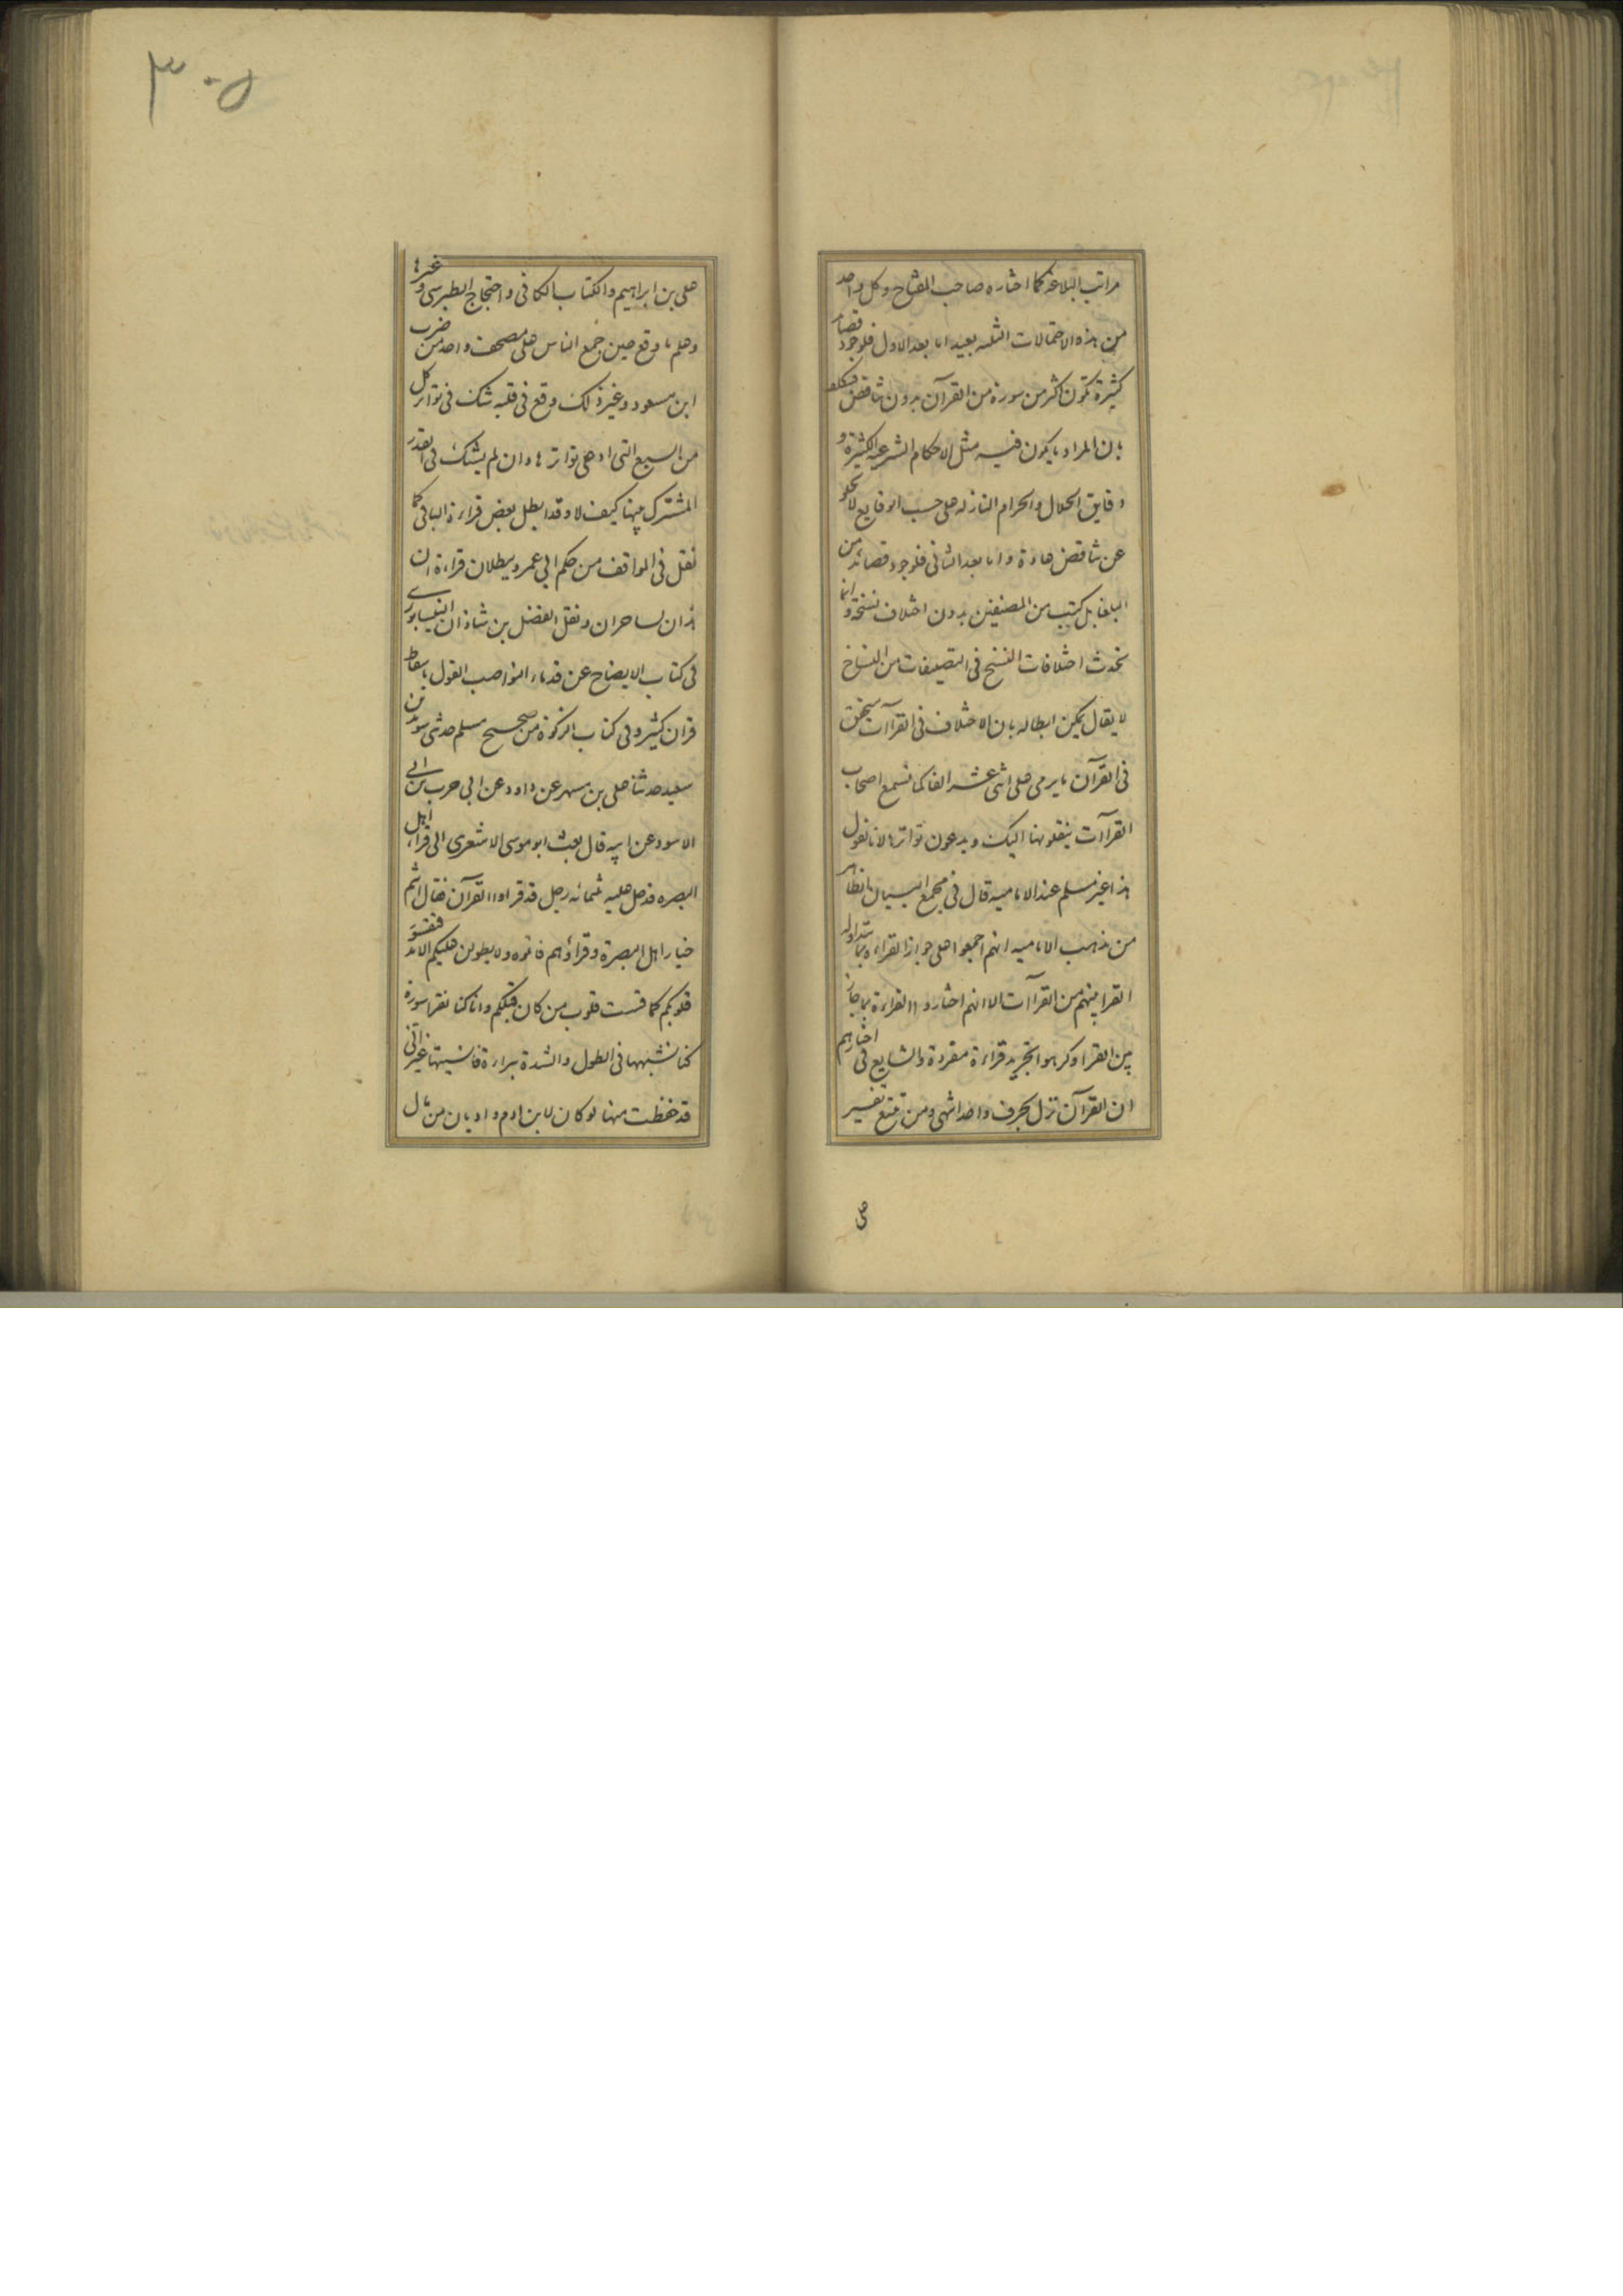 مراتب البلاغة كما اختاره صاحب المفتاح وكل واحد
من هذه الاحتمالات الثلثه بعيد اما بعد الاول فلوجود قصايد
كثيرة تكون اكثر من سورة من القرآن بدون تناقض فيكلف
بان المراد ما يكون فيه مثل الاحكام الشرعيه الكثيرة و
دقايق الحلال والحرام النازله على حسب الوقايع لا يخلو
عن تناقض عادة واما بعد الثانى فلوجود قصائد من
البلغا بل كتب من المصنفين بدون اختلاف نسخة وانما
تحدث اختلافات النسخ فى التصنيفات من النساخ
لا يقال يمكن ابطاله بان الاختلاف فى القرآات متحقق
فى القرآن ما يرمى على اثنى عشر الفا كما تسمع اصحاب
القرآات ينقلونها اليك ويدعون تواترها لانا نقول
هذا غير مسلم عند الاماميه قال فى مجمع البيان الظاهر
من مذهب الاماميه انهم اجمعوا على جواز القراءة بما يتداوله
القرا بينهم من القرآات الا انهم اختاروا القراءة بما جاز
بين القرا وكرهوا تجريد قراءة مفردة والشايع فى اخبارهم
ان القرآن نزل بحرف واحد انتهى ومن تتبع تفسير
على
٣٠٥
على بن ابراهيم والكتاب الكافى واحتجاج الطبرسى وغيرها
وعلم ما وقع حين جمع الناس على مصحف واحد من ضرب
ابن مسعود وغير ذلك وقع فى قلبه شك فى تواتر كل
من السبع التى ادعى تواترها وان لم يشك فى القدر
المشترك بينها كيف لا وقد ابطل بعض قراءة الباقى كما
نقل فى المواقف من حكم ابى عمرو ببطلان قراءة ان
هذان لساحران ونقل الفضل بن شاذان النيسابورى
فى كتاب الايضاح عن قدماء النواصب القول باسقاط
قران كثير وفى كتاب الزكوة من صحيح مسلم حدثنى سويد بن
سعيد حدثنا على بن مسهر عن داود عن ابى حرب بن ابى
الاسود عن ابيه قال بعث ابو موسى الاشعرى الى قراء اهل
البصره فدخل عليه ثلثمائه رجل قد قراوا القرآن فقال انتم
خيار اهل البصرة وقراؤهم فاتلوه ولا يطولن عليكم الامد فتقسو
قلوبكم كما قست قلوب من كان قبلكم وانا كنا نقرا سورة
كنا نشبهها فى الطول والشدة ببراءة فانسيتها غير انى
قد حفظت منها لو كان لابن ادم واديان من مال